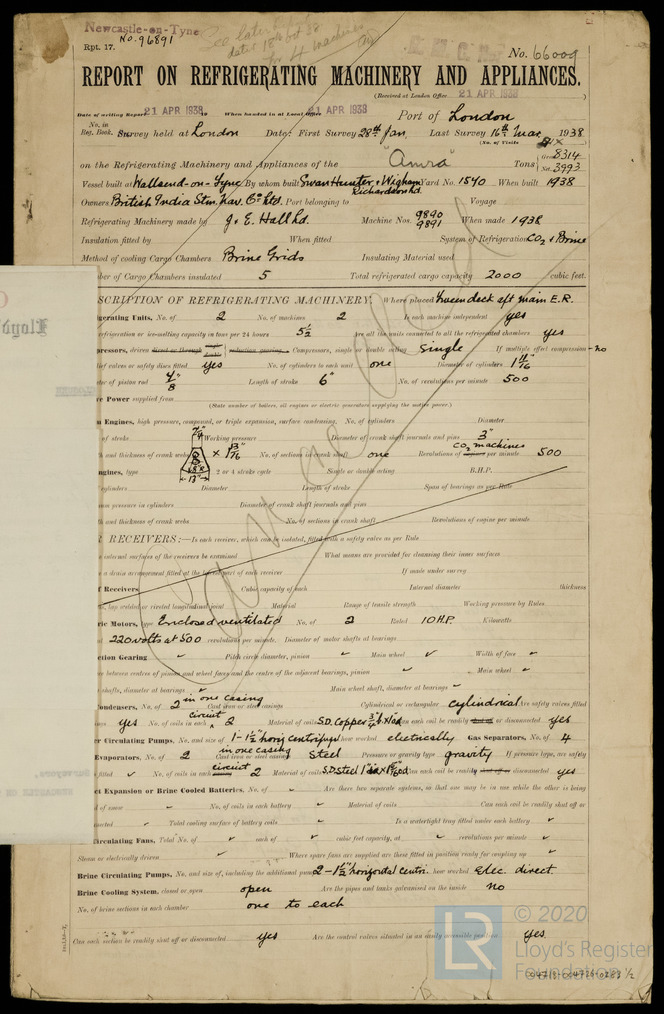 Newcastle-on-Tyne
No. 96891
See later
Rpt. 17.
No. 66009
REPORT ON REFRIGERATING MACHINERY AND APPLIANCES.
(Received at London Office 21 APR 1938)
Date of writing Report 21 APR 1938 When handed in at Local Office 21 APR 1938 Port of London
No. in Reg. Book. Survey held at London Date: First Survey 28th Jan. Last Survey 16th Mar 1938
(No. of Visits
on the Refrigerating Machinery and Appliances of the "Amra" Tons Gross 8314 Net 3993
Vessel built at Wallsend-on-Tyne By whom built Swan Hunter & Wigham Richardson Ld. Yard No. 1540 When built 1938
Owners British India Stm. Nav. Co. Ltd. Port belonging to Voyage
Refrigerating Machinery made by J & E. Hall Ld. Machine Nos. 9890 9891 When made 1938
Insulation fitted by When fitted System of Refrigeration CO2 & Brine
Method of cooling Cargo Chambers Brine Grids Insulating Material used
ber of Cargo Chambers insulated 5 Total refrigerated cargo capacity 2000 cubic feet.
SCRIPTION OF REFRIGERATING MACHINERY. Where placed Tween deck aft main E.R.
igerating Units, No. of 2 No. of machines 2 Is each machine independent yes
refrigeration or ice-melting capacity in tons per 24 hours 5½ Are all the units connected to all the refrigerated chambers yes
pressors, driven direct or through reduction gearing. Compressors, single or double acting Single If multiple effect compression - no
lief valves or safety discs fitted yes No. of cylinders to each unit one Diameter of cylinders 1 11/16
ter of piston rod 4/8" Length of stroke 6" No. of revolutions per minute 500
ve Power supplied from
(State number of boilers, oil engines or electric generators supplying the motive power.)
m Engines, high pressure, compound, or triple expansion, surface condensing. No. of cylinders Diameter
of stroke Working pressure Diameter of crank shaft journals and pins 3"
th and thickness of crank webs × 1 13/16 No. of sections in crank shaft one Revolutions of CO2 machines per minute 500
ngines, type 2 or 4 stroke cycle Single or double acting B.H.P.
cylinders Diameter Length of stroke Span of bearings as per Rule
um pressure in cylinders Diameter of crank shaft journals and pins
th and thickness of crank webs No. of sections in crank shaft Revolutions of engine per minute
RECEIVERS:—Is each receiver, which can be isolated, fitted with a safety valve as per Rule
internal surfaces of the receivers be examined What means are provided for cleansing their inner surfaces
a drain arrangement fitted at the lowest part of each receiver If made under survey
f Receivers Cubic capacity of each Internal diameter thickness
, lap welded or riveted longitudinal joint Material Range of tensile strength Working pressure by Rules
ric Motors, type Enclosed ventilated No. of 2 Rated 10 H.P. Kilowatts
220 volts at 500 revolutions per minute. Diameter of motor shafts at bearings
ction Gearing Pitch circle diameter, pinion Main wheel Width of face
ce between centres of pinion and wheel faces and the centre of the adjacent bearings, pinion Main wheel
shafts, diameter at bearings Main wheel shaft, diameter at bearings
ondensers, No. of 2 in one casing Cast iron or steel casings Cylindrical or rectangular cylindrical Are safety valves fitted
yes No. of coils in each circuit 2 Material of coils S.D. Copper Can each coil be readily shut off or disconnected yes
r Circulating Pumps, No. and size of 1 - 1½" horiz centrifugal how worked electrically Gas Separators, No. of 4
Evaporators, No. of 2 in one casing Cast iron or steel casings Steel Pressure or gravity type gravity If pressure type, are safety
fitted No. of coils in each circuit 2 Material of coils S.D. Steel Can each coil be readily shut off or disconnected yes
ct Expansion or Brine Cooled Batteries, No. of Are there two separate systems, so that one may be in use while the other is being
d of snow No. of coils in each battery Material of coils Can each coil be readily shut off or
nected Total cooling surface of battery coils Is a watertight tray fitted under each battery
irculating Fans, Total No. of each of cubic feet capacity, at revolutions per minute
Steam or electrically driven Where spare fans are supplied are these fitted in position ready for coupling up
Brine Circulating Pumps, No. and size of, including the additional pump 2 - 1½" horizontal centri. how worked Elec. direct.
Brine Cooling System, closed or open open Are the pipes and tanks galvanised on the inside no
No. of brine sections in each chamber one to each
Can each section be readily shut off or disconnected yes Are the control valves situated in an easily accessible position yes
Lloyd's
LR
© 2020
Lloyd's Register
Foundation